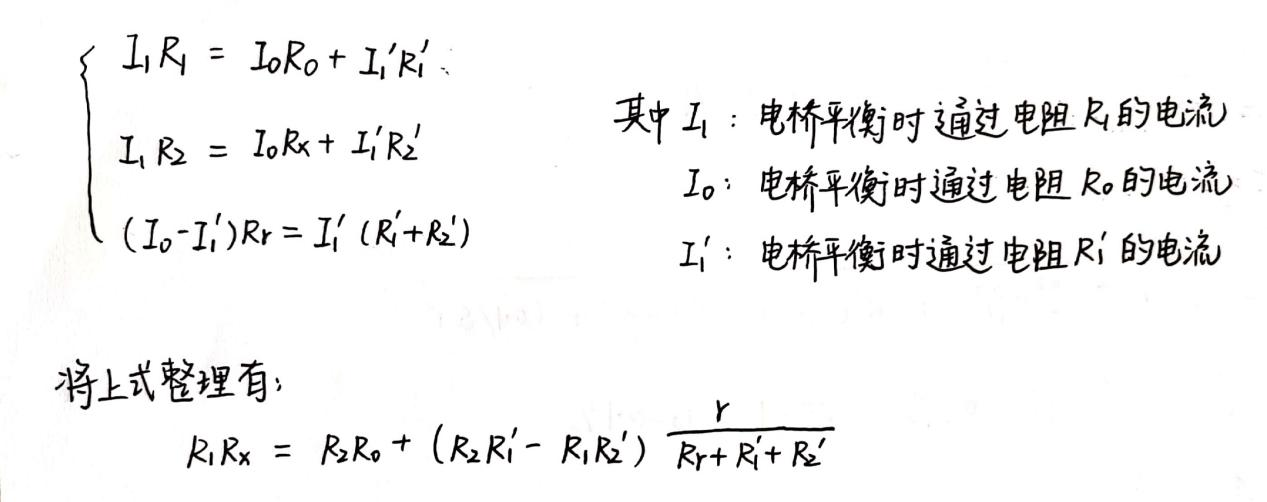 I₁R₁ = I₀R₀ + I₁′R₁′
I₁R₂ = I₀Rx + I₁′R₂′
(I₀-I₁′)Rr = I₁′(R₁′+R₂′)
其中 I₁：电桥平衡时通过电阻R₁的电流
I₀：电桥平衡时通过电阻R₀的电流
I₁′：电桥平衡时通过电阻R₁′的电流
将上式整理有：
R₁Rx = R₂R₀ + (R₂R₁′ - R₁R₂′) r/(Rr+R₁′+R₂′)